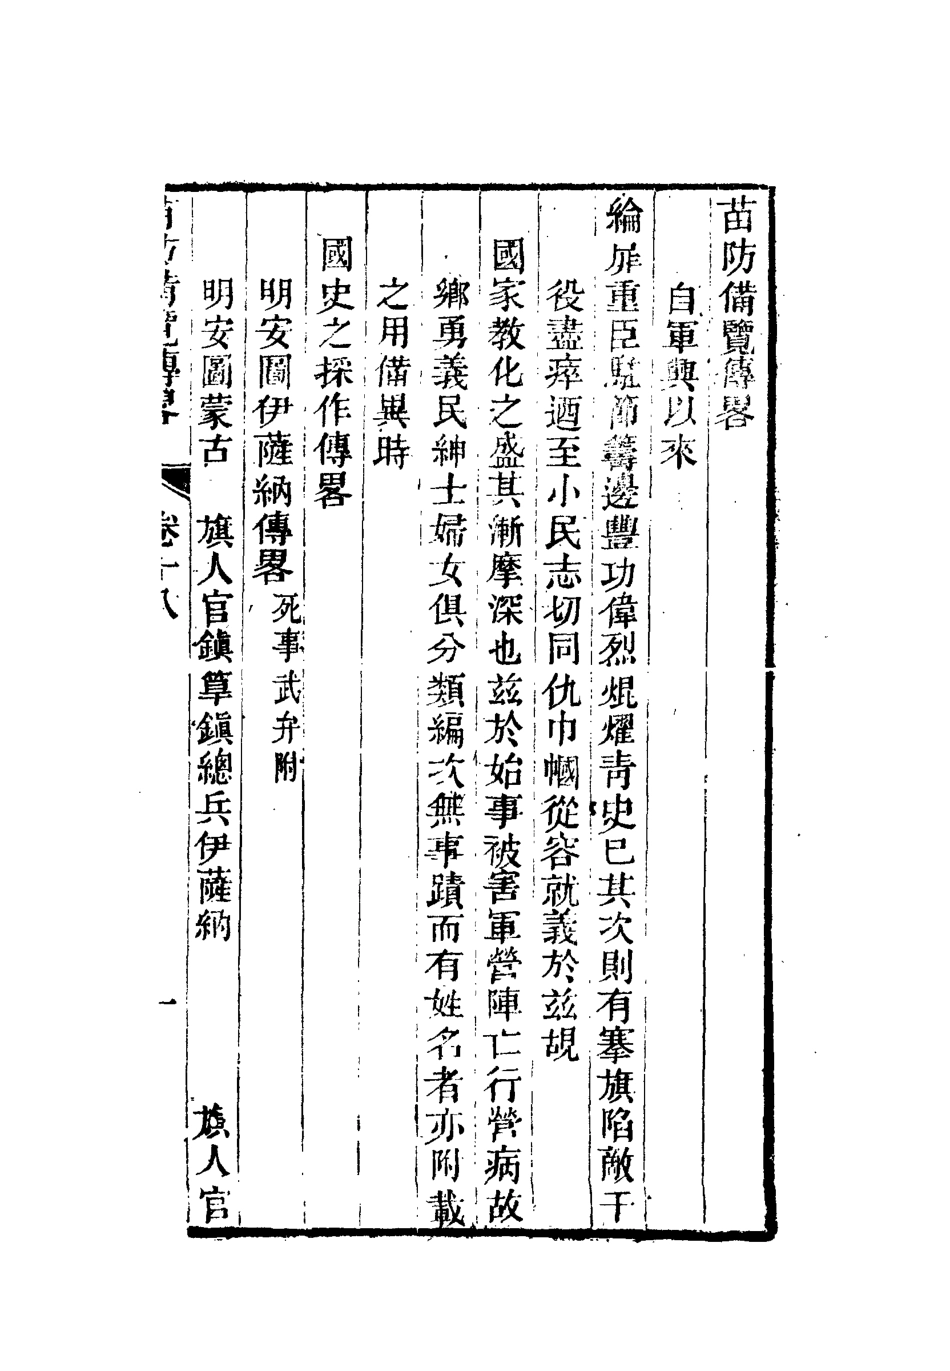 苗防備覽傳畧
自軍興以來
綸扉重臣駐節籌邊豐功偉烈焜燿青史已其次則有搴旗陷敵干
役盡瘁迺至小民志切同仇巾幗從容就義於兹覘
國家教化之盛其漸摩深也兹於始事被害軍營陣亡行營病故
鄉勇義民紳士婦女俱分類編次無事蹟而有姓名者亦附載
之用備異時
國史之採作傳畧
明安圖伊薩納傳畧 死事武弁附
明安圖蒙古 旗人官鎮筸鎮總兵伊薩納 旗人官
苗防備覽傳畧 卷十八 一